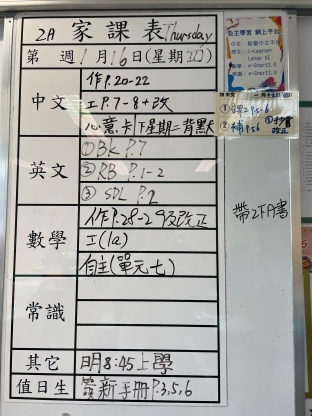 2A 家課表 Thursday
第 週 1月16日(星期四)
中文
作P.20-22
工P.7-8+改
心意卡下星期二背默
英文
① BK P.7
② RB P.1-2
③ SDL P.2
數學
作P.28-29及改正
工(1a)
自主(單元七)
常識
其它
明8:45上學
值日生
簽新手冊P.3,5,6
自主學習 網上平台
帶2下A書